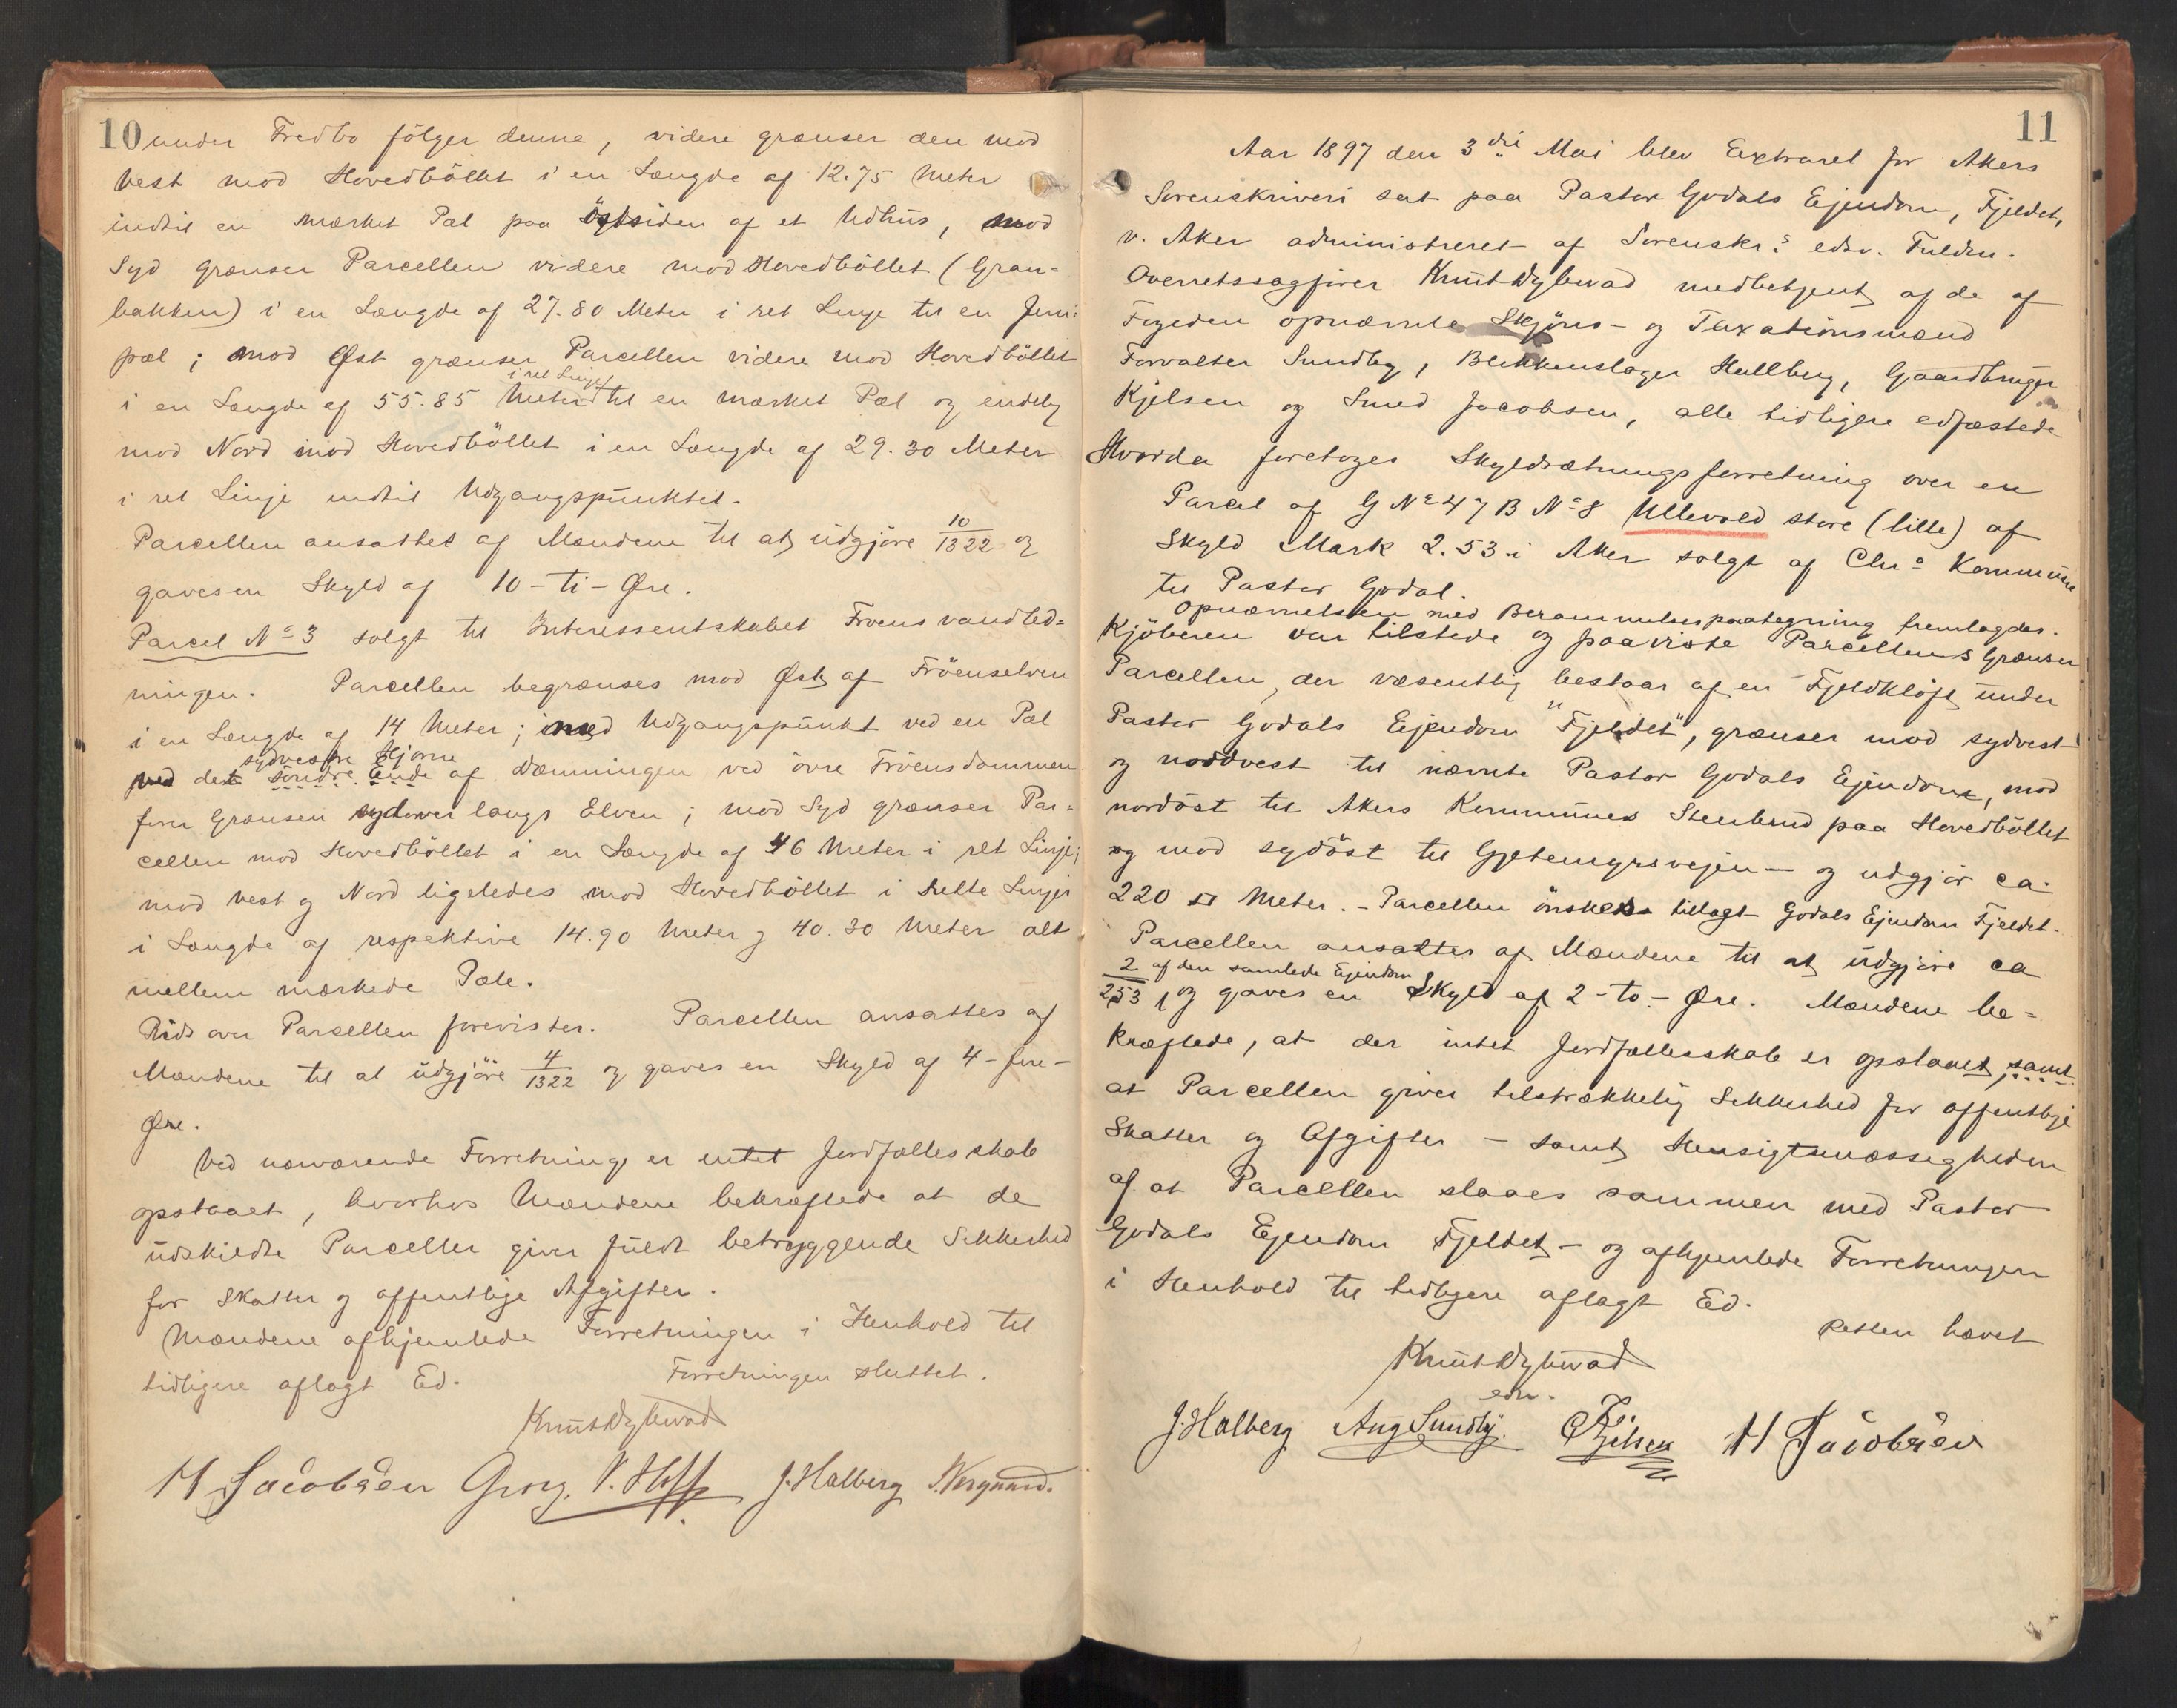 10 under Fredbo fölger denne, videre grænser den mod
Vest mod Hovedböllet i en Længde af 12.75 Meter
indtil en mærket Pæl paa Östsiden af et Udhus, mod
Syd grænser Parcellen videre mod Hovedböllet (Gran-
bakken) i en Længde af 27.80 Meter i ret Linje til en Jern-
pæl; mod Øst grænser Parcellen videre mod Hovedböllet
i en Længde af 55.85 Meter i ret Linje til en mærket Pæl og endelig
mod Nord mod Hovedböllet i en Længde af 29.30 Meter
i ret Linje indtil Udgangspunktet.
Parcellen ansattes af Mændene til at udgjöre 10/1322 og
gaves en Skyld af 10 - ti - Øre.
Parcel No 3 solgt til Interessentskabet Froens vandled-
ningen. Parcellen begrænses mod Øst af Fröenselven
i en Længde af 14 Meter; med Udgangspunkt ved en Pæl
sydvestre Hjörne
ved det söndre Ende af Dæmningen ved övre Fröensdammen
Grænsen sydover langs Elven; mod Syd grænser Par-
cellen mod Hovedböllet i en Længde af 46 Meter i ret Linje;
mod Vest og Nord ligeledes mod Hovedböllet i rette Linjer
i Længde af respektive 14.90 Meter og 40.30 Meter alt
mellem mærkede Pæle.
Rids over Parcellen forevistes. Parcellen ansattes af
Mændene til at udgjöre 4/1322 og gaves en Skyld af 4 - fire -
Øre.
Ved nærværende Forretning er intet Jordfælles skab
opstaaet, hvorhos Mændene bekræftede at de
udskildte Parceller giver fuldt betryggende Sikkerhed
for Skatter og offentlige Afgifter.
Mændene afhjemlede Forretningen i Henhold til
tidligere aflagt Ed. Forretningen sluttet.
Knut Dybwad
H Jacobsen Georg. V. Hoff J. Halberg
11
Aar 1897 den 3die Mai blev Extraret for Akers
Sorenskriveri sat paa Pastor Godals Ejendom, Fjeldet,
v. Aker administreret af Sorenskr.s edsv. Fuldm.
Overretssagförer Knut Dybwad medbetjent af de af
Fogeden opnævnte Skjöns- og Taxationsmænd
Forvalter Sundby, Blikkenslager Hallberg, Gaardbruger
Kjelsen og Smed Jacobsen, alle tidligere edfæstede
Hvorda foretoges Skyldsætningsforretning over en
Parcel af G No 47 B No 8 Ullevold store (lille) af
Skyld Mark 2.53 i Aker solgt af Chra Kommune
til Pastor Godal.
Opnævnelsen med Berammelsespaategning fremlagdes.
Kjöberen var tilstede og paaviste Parcellens Grænser
Parcellen, der væsentlig bestaar af en Fjeldklöft under
Pastor Godals Ejendom "Fjeldet", grænser mod sydvest
og nordvest til nævnte Pastor Godals Ejendom, mod
nordöst til Akers Kommunes Stenbrud paa Hovedböllet
og mod sydöst til Gjetemyrsvejen - og udgjör ca.
220 □ Meter. - Parcellen önskes tillagt Godals Ejendom Fjeldet.
Parcellen ansattes af Mændene til at udgjöre ca
2/253 af den samlede Ejendom, og gaves en Skyld af 2 - to - Øre. Mændene be-
kræftede, at der intet Jordfællesskab er opstaaet, samt
at Parcellen giver tilstrækkelig Sikkerhed for offentlige
Skatter og Afgifter - samt Hensigtsmæssigheden
af at Parcellen slaaes sammen med Pastor
Godals Ejendom Fjeldet - og afhjemlede Forretningen
i Henhold til tidligere aflagt Ed.
Retten hævet
Knut Dybwad
edsv.
J. Halberg Aug Sundby. Kjelsen H Jacobsen